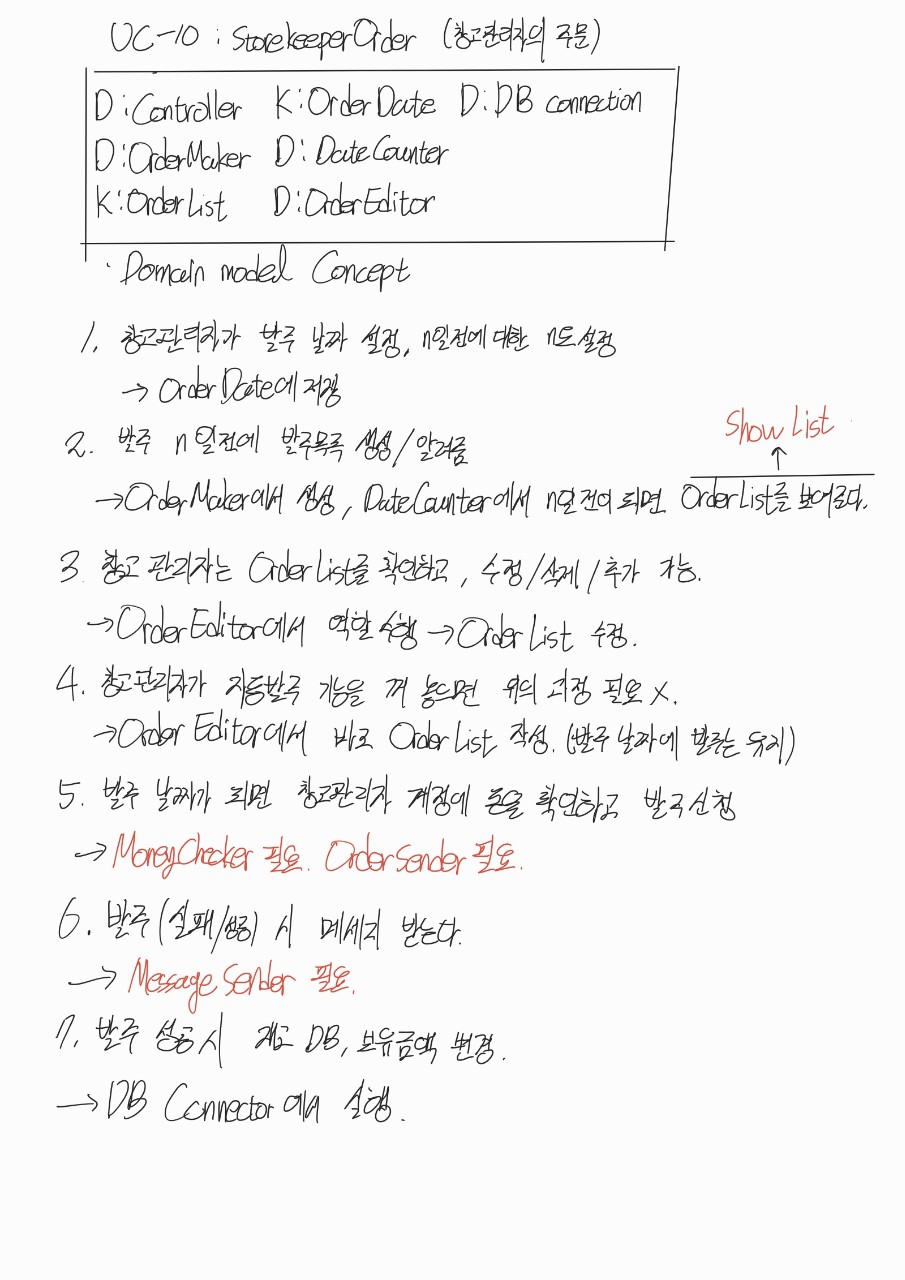 UC-10 : StorekeeperOrder (창고관리자의 주문)
D : Controller K : OrderDate D : DB connection
D : OrderMaker D : DateCounter
K : OrderList D : OrderEditor
· Domain model Concept
1. 창고관리자가 발주 날짜 설정, n일전에 대한 n도 설정
→ OrderDate에 저장
2. 발주 n일전에 발주목록 생성/알려줌
Show List
↑
→ OrderMaker에서 생성, DateCounter에서 n일전이 되면 OrderList를 보여준다.
3. 창고 관리자는 OrderList를 확인하고, 수정/삭제/추가 가능.
→ OrderEditor에서 역할 수행 → OrderList 수정.
4. 창고관리자가 자동발주 기능을 꺼 놓으면 위의 과정 필요 X.
→ Order Editor에서 바로 OrderList 작성. (발주 날짜에 발주는 유지)
5. 발주 날짜가 되면 창고관리자 계정에 돈을 확인하고 발주신청
→ MoneyChecker 필요. OrderSender 필요.
6. 발주(실패/성공) 시 메세지 받는다.
→ Message Sender 필요.
7. 발주 성공시 재고 DB, 보유금액 변경.
→ DB Connector에서 실행.